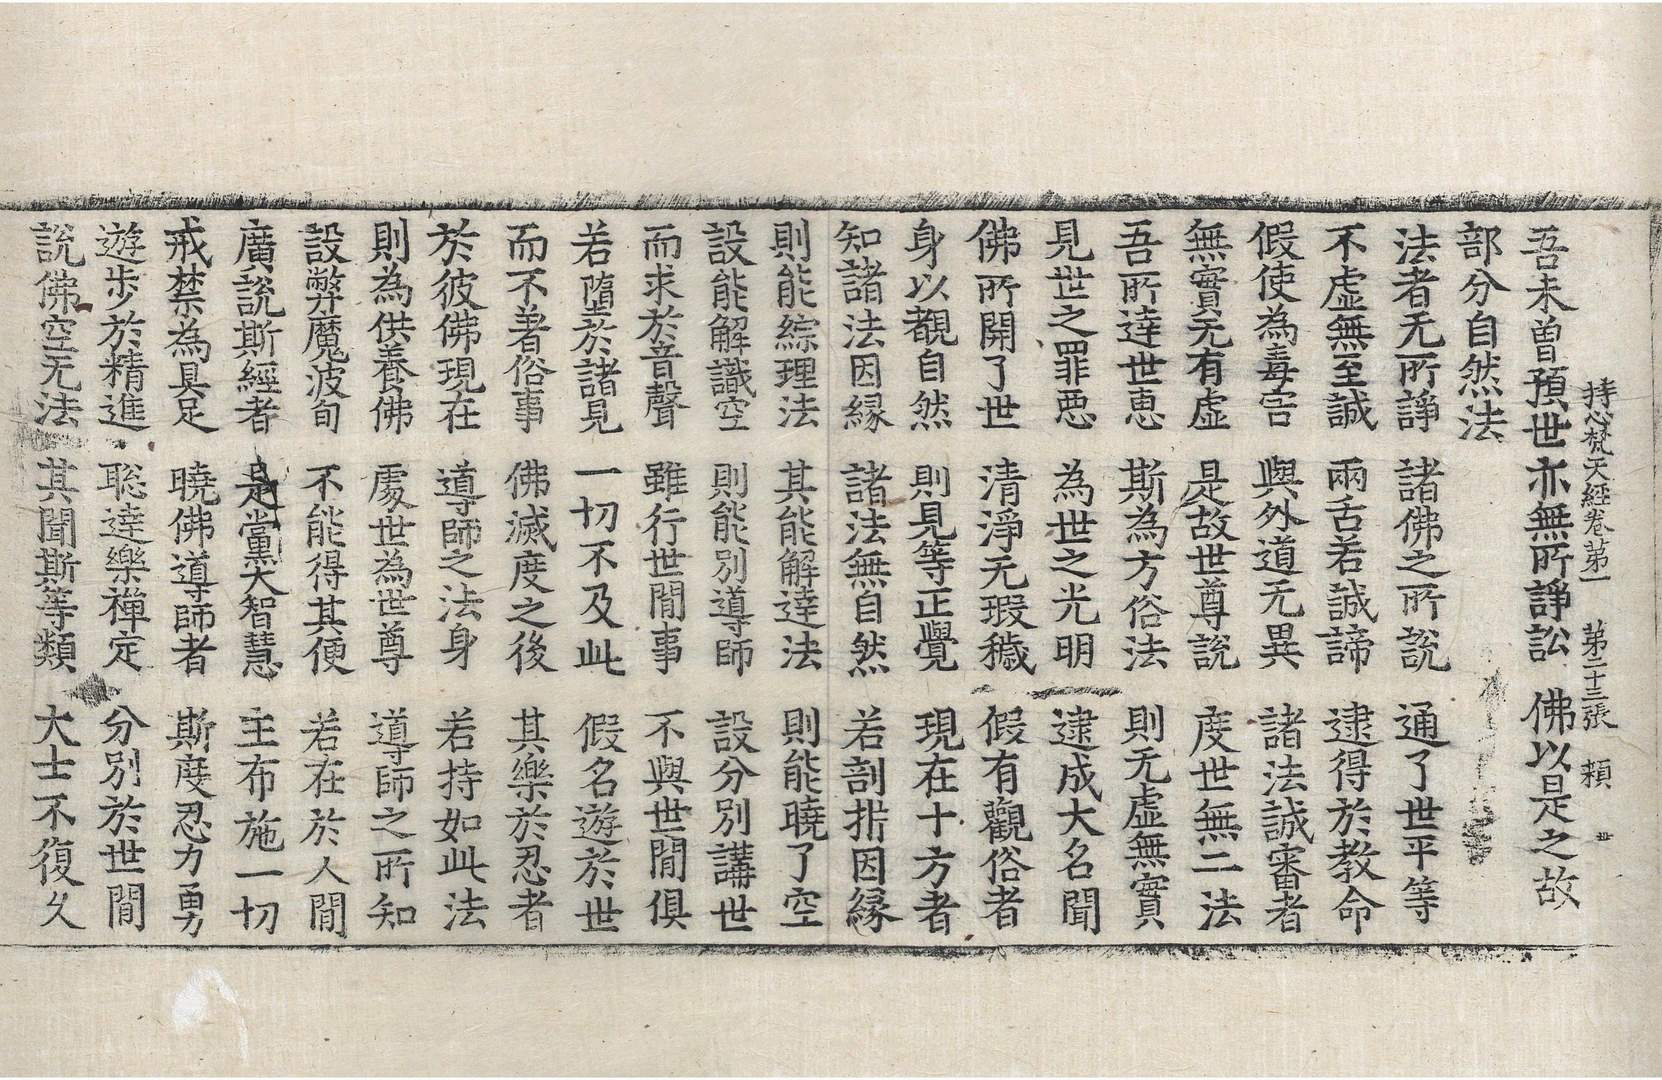 持心梵天經卷第一　第二十三張　頼
吾未曽預世　亦無所諍訟　佛以是之故
部分自然法
法者无所諍　諸佛之所説　通了世平等
不虛無至誠　兩舌若誠諦　逮得於教命
假使為毒害　與外道无異　諸法誠審者
無實无有虛　是故世尊説　度世無二法
吾所達世恵　斯為方俗法　則无虛無實
見世之罪悪　為世之光明　逮成大名聞
佛所開了世　清淨无瑕穢　假有觀俗者
身以覩自然　則見等正覺　現在十方者
知諸法因縁　諸法無自然　若剖析因縁
則能綜理法　其能解達法　則能曉了空
設能解識空　則能別導師　設分別講世
而求於音聲　雖行世閒事　不與世閒俱
若墮於諸見　一切不及此　假名遊於世
而不著俗事　佛滅度之後　其樂於忍者
於彼佛現在　導師之法身　若持如此法
則為供養佛　處世為世尊　導師之所知
設弊魔波旬　不能得其便　若在於人閒
廣説斯經者　是黨大智慧　主布施一切
戒禁為具足　曉佛導師者　斯度忍力勇
遊步於精進　聡達樂禪定　分別於世閒
説佛空无法　其聞斯等類　大士不復久